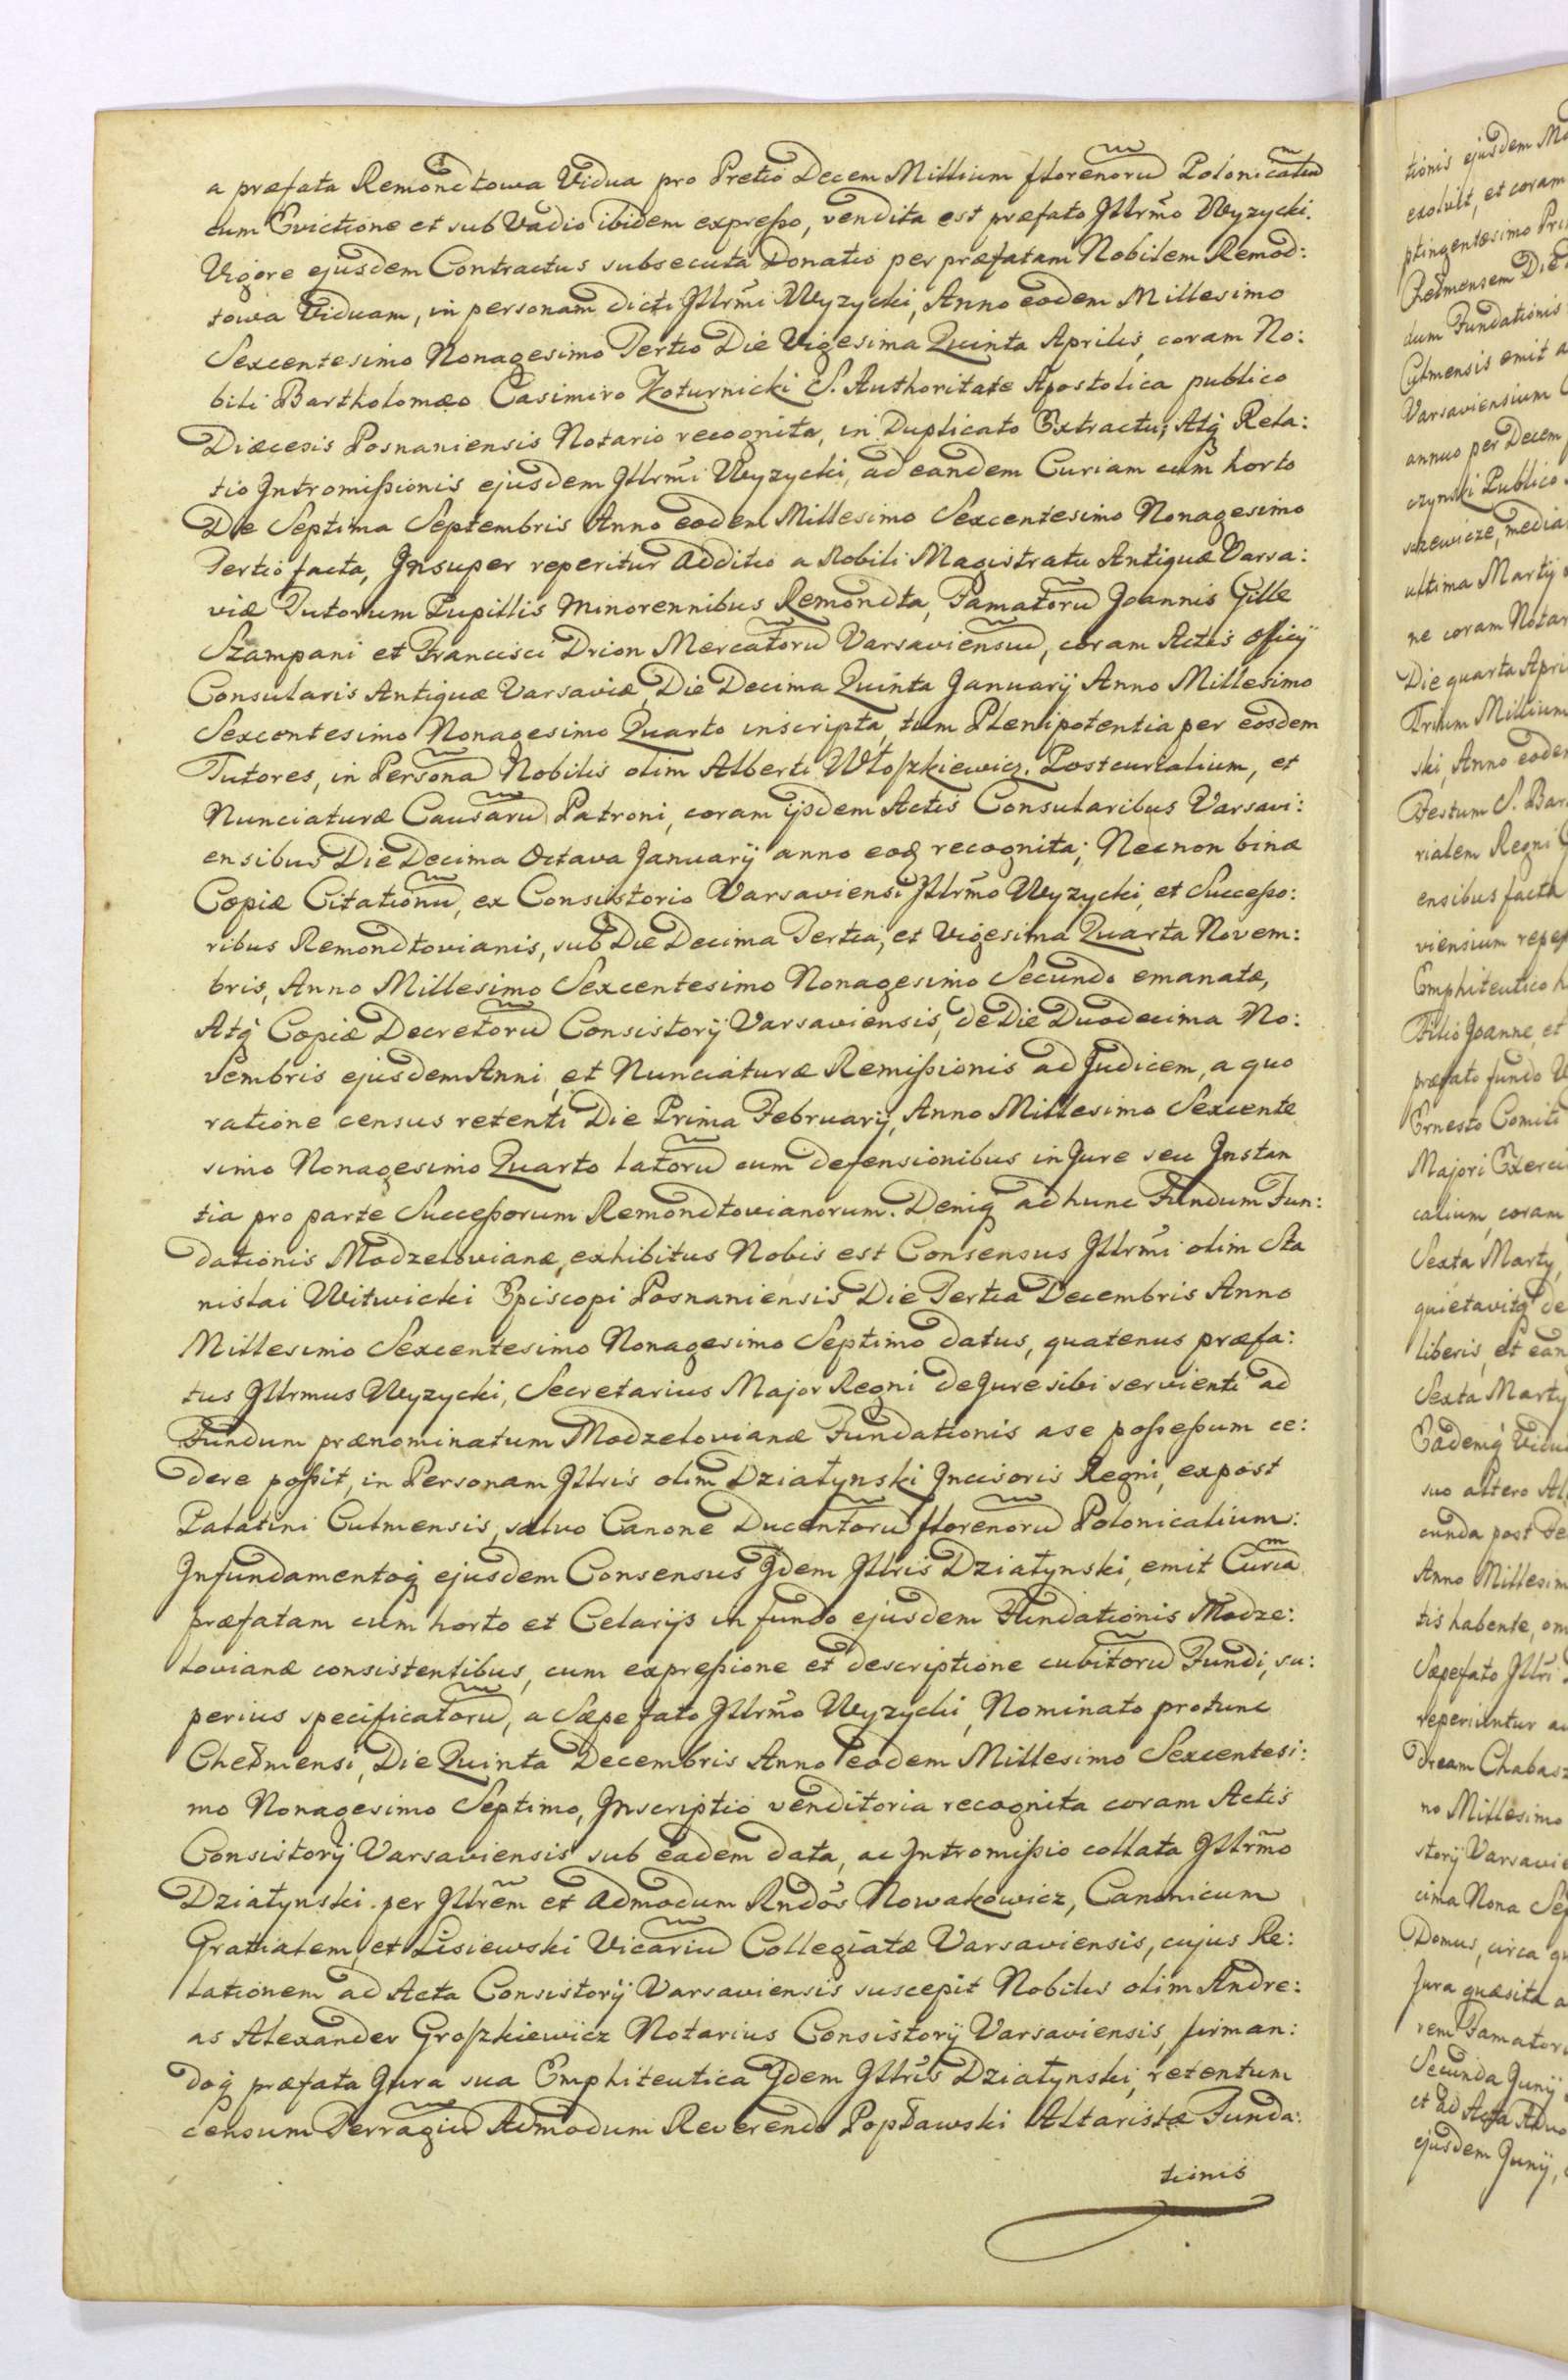 a præfata Remondtowa Vidua pro Pretio Decem Millium florenorũ Polonicaliũ
cum Evictione et sub Vadio ibidem expreßo, vendita est præfato Jllrm̃o Wyzycki.
Vigore ejusdem Contractus subsecuta Donatio per præfatam Nobilem Remod:
towa Viduam, in personam dicti Jllrm̃i Wyzycki, Anno eodem Millesimo
Sexcentesimo Nonagesimo Tertio Die Vigesima Quinta Aprilis, coram No:
bili Bartholomæo Casimiro Koturnicki S. Authoritate Apostolica publico
Diæcesis Posnaniensis Notario recognita, in Duplicato Extractu; Atq̃ Rela:
tio Jntromißionis ejusdem Jllrm̃i Wyzycki, ad eandem Curiam cum horto
Die Septima Septembris Anno eodem Millesimo Sexcentesimo Nonagesimo
Tertio facta, Jnsuper reperitur Additio a Nobili Magistratu Antiquæ Varsa:
viæ Tutorum Pupillis Minorennibus Remondta, Famatorũ Joannis Gille
Szampani et Francisci Drion Mercatorũ Varsaviensiũ, coram Actis Officÿ
Consularis Antiquæ Varsaviæ, Die Decima Quinta Januarÿ Anno Millesimo
Sexcentesimo Nonagesimo Quarto inscripta, tum Plenipotentia per eosdem
Tutores, in Personã Nobilis olim Alberti Włoszkiewicz, Postcurialium, et
Nunciaturæ Causarũ Patroni, coram ijsdem Actis Consularibus Varsavi:
ensibus Die Decima Octava Januarÿ anno eoq̃ recognita; Necnon binæ
Copiæ Citationũ, ex Consistorio Varsaviensi Jllrm̃o Wyzycki, et Succeßo:
ribus Remondtovianis, sub Die Decima Tertia, et Vigesima Quarta Novem:
bris, Anno Millesimo Sexcentesimo Nonagesimo Secundo emanatæ,
Atq̃ Copiæ Decretorũ Consistorÿ Varsaviensis, de Die Duodecima No:
vembris ejusdem Anni, et Nunciaturæ Remißionis ad Judicem, a quo
ratione census retenti Die Prima Februarÿ, Anno Millesimo Sexcente
simo Nonagesimo Quarto latorũ cum defensionibus in Jure seu Jnstan
tia pro parte Succeßorum Remondtovianorum. Deniq̃ ad hunc Fundum Fun:
dationis Modzelovianæ, exhibitus Nobis est Consensus Jllrm̃i olim Sta
nislai Witwicki Episcopi Posnaniensis Die Tertia Decembris Anno
Millesimo Sexcentesimo Nonagesimo Septimo datus, quatenus præfa:
tus Jllrmus Wyzycki, Secretarius Major Regni de Jure sibi servienti ad
Fundum prænominatum Modzelovianæ Fundationis a se poßeßum ce:
dere poßit, in Personam Jllris olim Działynski Jncisoris Regni, expost
Palatini Culmensis, salvo Canone Ducentorũ florenorũ Polonicalium:
Jnfundamentoq̃ ejusdem Consensus Jdem Jllris Działynski, emit Curiã
præfatam cum horto et Celarÿs in fundo ejusdem Fundationis Modze:
lovianæ consistentibus, cum expreßione et descriptione cubitorũ Fundi, su:
perius specificatorũ, a Sæpe fato Jllrm̃o Wyzycki, Nominato protunc
Chełmensi, Die Quinta Decembris Anno eodem Millesimo Sexcentesi:
mo Nonagesimo Septimo, Jnscriptio venditoria recognita coram Actis
Consistorÿ Varsaviensis sub eadem data, ac Jntromißio collata Jllrm̃o
Działynski per Jllrem̃ et Admodum Rndos̃ Nowakowicz, Canonicum
Gratialem, et Lisiewski Vicariũ Collegiatæ Varsaviensis, cujus Re:
lationem ad Acta Consistorÿ Varsaviensis suscepit Nobilis olim Andre:
as Alexander Groszkiewicz Notarius Consistorÿ Varsaviensis, firman:
doq̃ præfata Jura sua Emphiteutica Jdem Jllris̃ Działynski, retentum
censum Terragiũ Admodum Reverendo Popławski Altaristæ Funda:
tionis
tionis ejusdem Mo
exolvit, et coram
ptingentesimo Pri
Chełmensem Die
dum Fundationis
Culmensis emit a
Varsaviensium C
annuo per Decem
czynski Publico
szewicze, media
ultima Martÿ
ne coram Notar
Die quarta Apri
Trium Millium
ski, Anno eodem
Festum S. Bar
rialem Regni
ensibus facta
viensium repe
Emphiteutico h
Filio Joanne, et
præfato fundo W
Ernesto Comiti
Majori Exerci
calium, coram
Sexta Martÿ,
quietavitq̃ de
liberis, et ean
Sexta Martÿ
Eademq̃ Vidu
suo altero Al
cunda post Fe
Anno Millesim
tis habente, om
Sæpefato Jllri
reperiuntur a
dream Chabas
no Millesimo
storÿ Varsavie
cima Nona Sep
Domus, circa q
Jura quæsita a
rem Famator
Secunda Junÿ
et ad Acta Advo
ejusdem Junÿ,